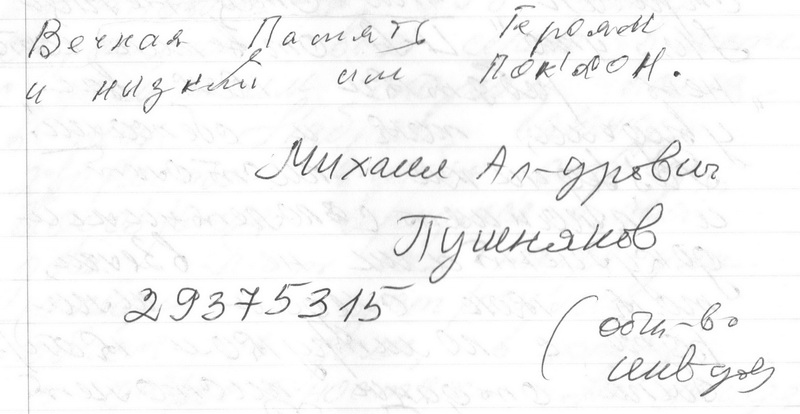 Вечная Память Героям
и низкий им поклон.
Михаил Ал-дрович
Пушняков
29375315
(общ-во
инв-дов